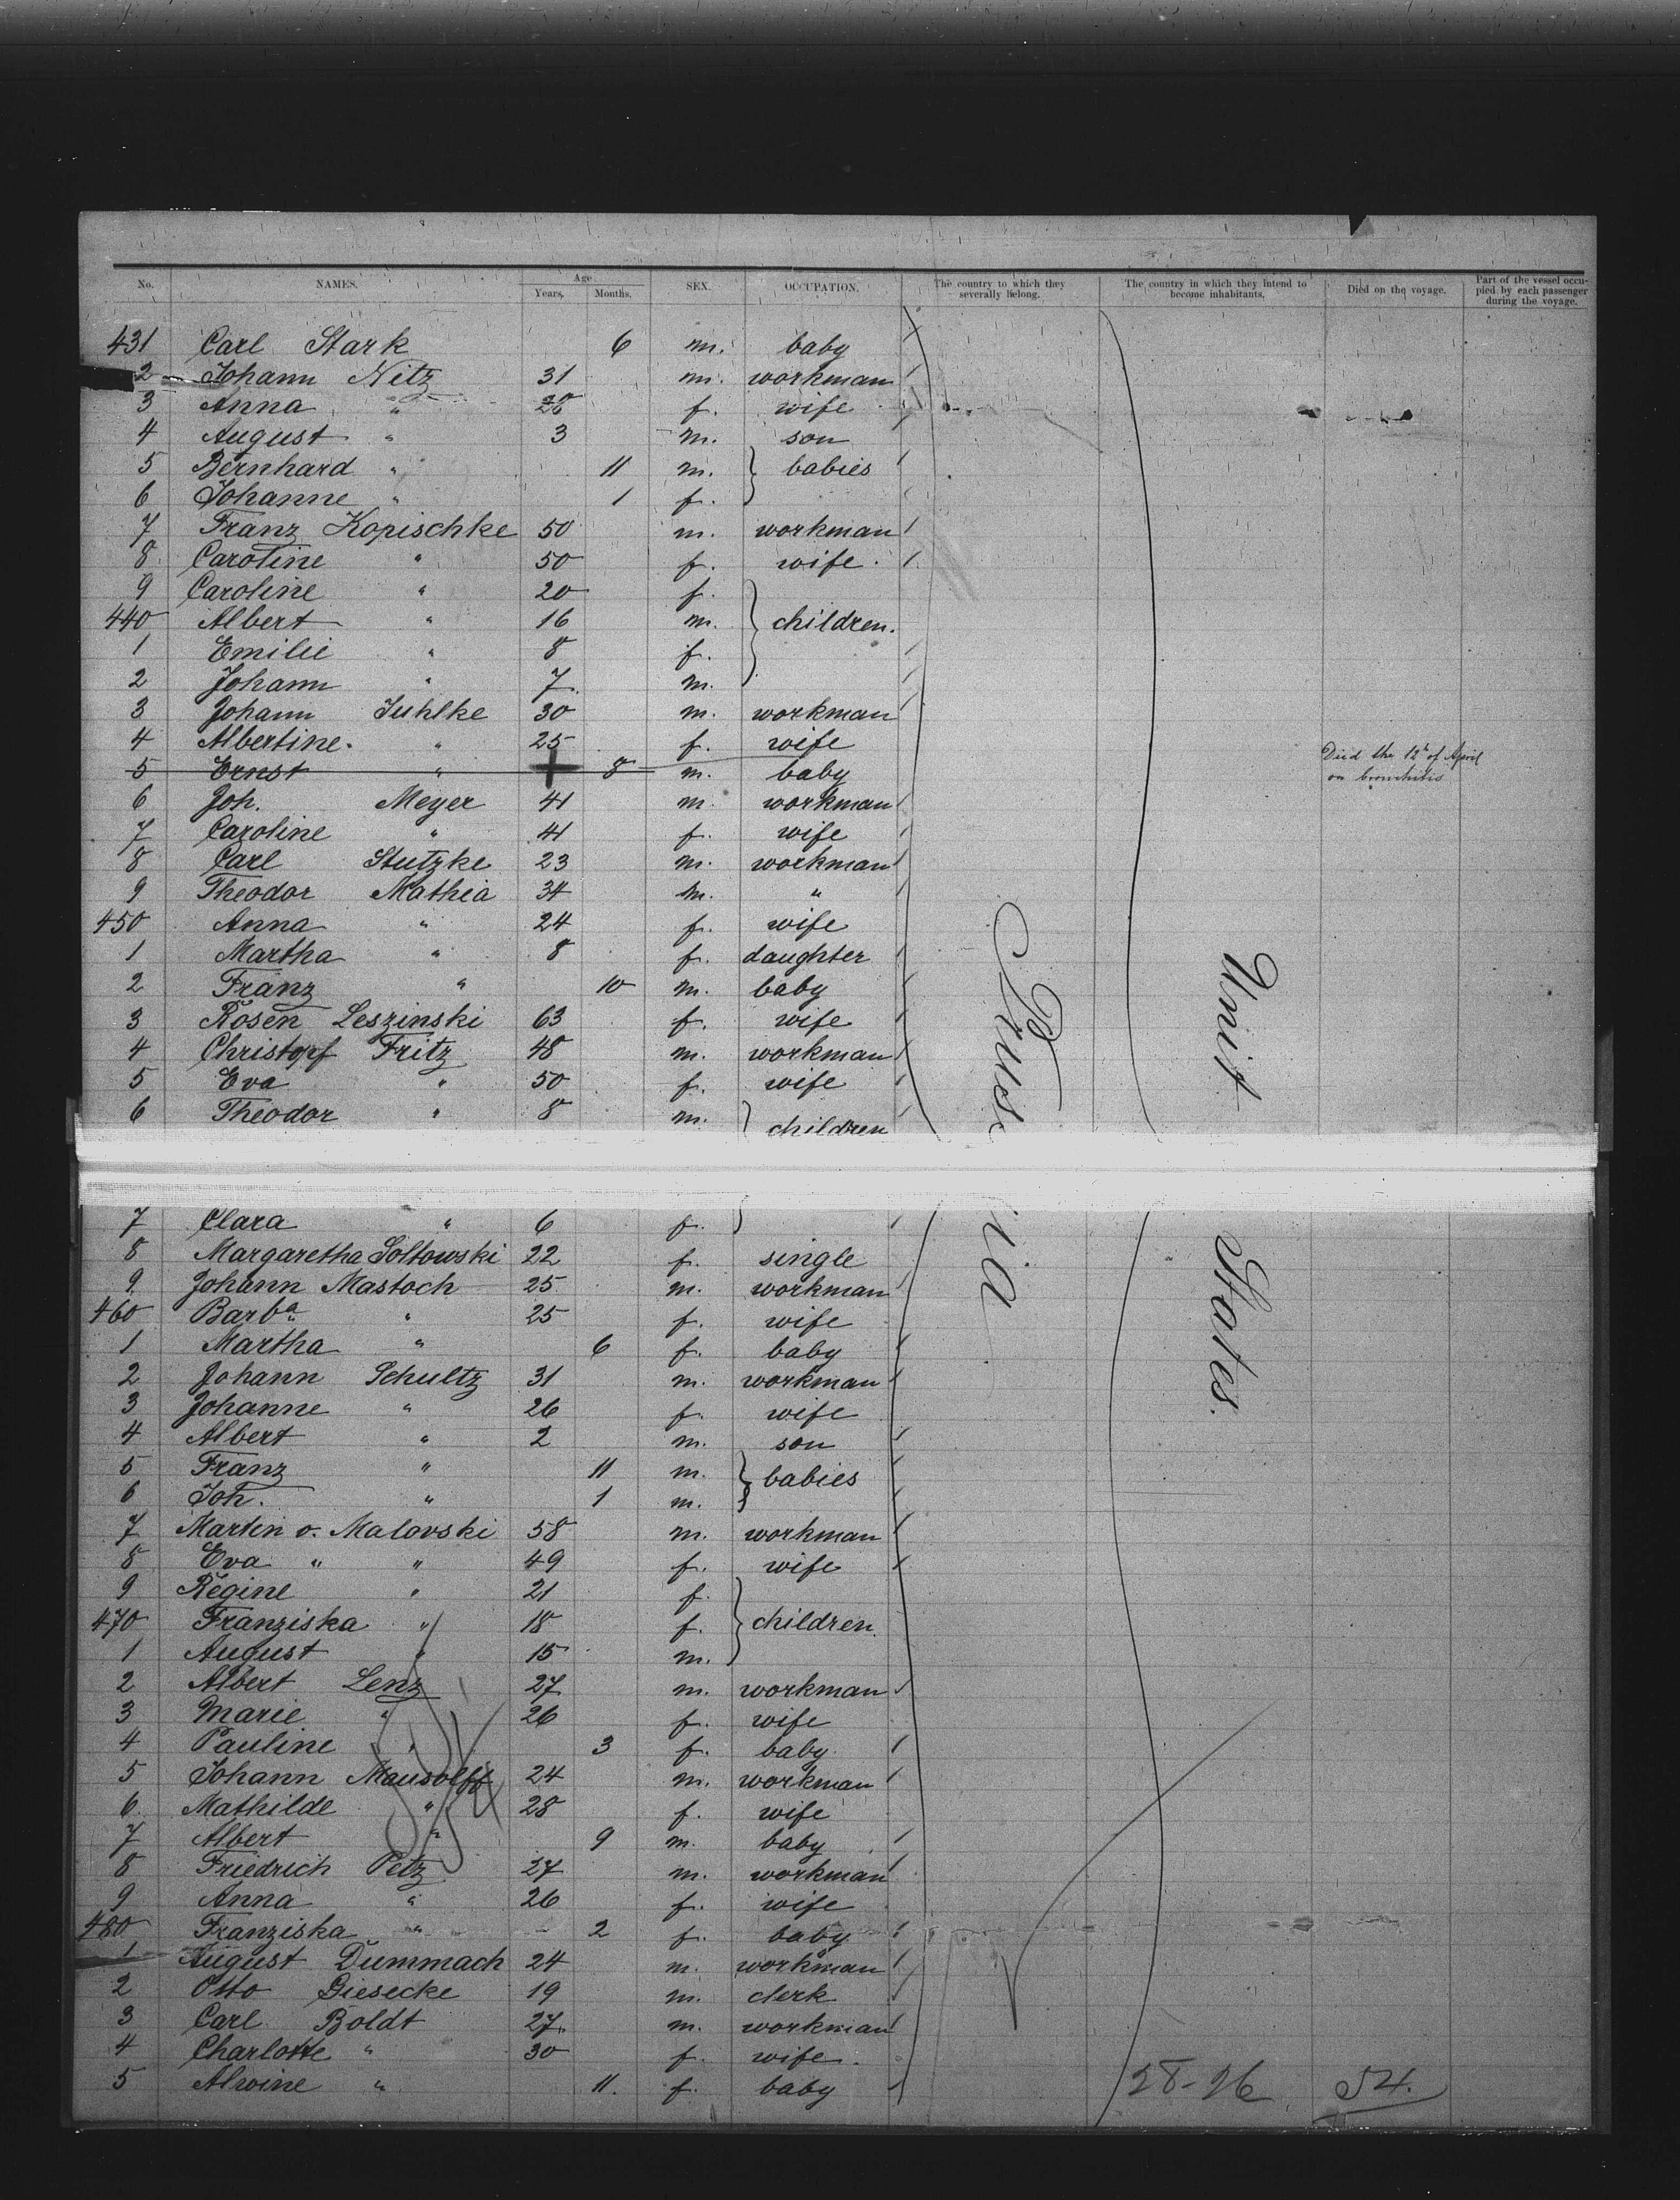 No. NAMES. Age. Years. Months. SEX. OCCUPATION. The country to which they severally belong. The country in which they intend to become inhabitants. Died on the voyage. Part of the vessel occupied by each passenger during the voyage.
431 Carl Stark 6 m. baby
2 Johann Nitz 31 m. workman
3 Anna " f. wife
4 August " 3 m. son
5 Bernhard " 11 m. babies
6 Johanne " 1 f.
7 Franz Kopischke 50 m. workman
8 Caroline " 50 f. wife
9 Caroline " 20 f.
440 Albert " 16 m. children.
1 Emilie " 8 f.
2 Johann " 7 m.
3 Johann Juhlke 30 m. workman
4 Albertine " 25 f. wife
5 Ernst " 8 m. baby Died the 12th of April on bronchitis
6 Joh. Meyer 41 m. workman
7 Caroline " 41 f. wife
8 Carl Stutzke 23 m. workman
9 Theodor Mathia 34 m. "
450 Anna " 24 f. wife
1 Martha " 8 f. daughter
2 Franz " 10 m. baby
3 Rosen Leszinski 63 f. wife
4 Christopf Fritz 48 m. workman
5 Eva " 50 f. wife
6 Theodor " 8 m. children
7 Clara " 6 f.
8 Margaretha Soltowski 22 f. single
9 Johann Mastoch 25 m. workman
460 Barba " 25 f. wife
1 Martha " 6 f. baby
2 Johann Schultz 31 m. workman
3 Johanne " 26 f. wife
4 Albert " 2 m. son
5 Franz " 11 m. babies
6 Joh. " 1 m.
7 Martin v. Malovski 58 m. workman
8 Eva " " 49 f. wife
9 Regine " 21 f.
470 Franziska " 18 f. children.
1 August " 15 m.
2 Albert Lenz 27 m. workman
3 Marie " 26 f. wife
4 Pauline " 3 f. baby
5 Johann Mausolff 24 m. workman
6 Mathilde " 28 f. wife
7 Albert " 9 m. baby
8 Friedrich Petz 27 m. workman
9 Anna " 26 f. wife
480 Franziska " 2 f. baby
1 August Dummach 24 m. workman
2 Otto Giesecke 19 m. clerk
3 Carl Boldt 27 m. workman
4 Charlotte " 30 f. wife
5 Alwine " 11 f. baby
Prussia
Unit States.
28-26 54.